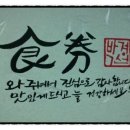 食券
와주셔서 진심으로 감사합니다
맛있게 드시고 늘 건강하세요